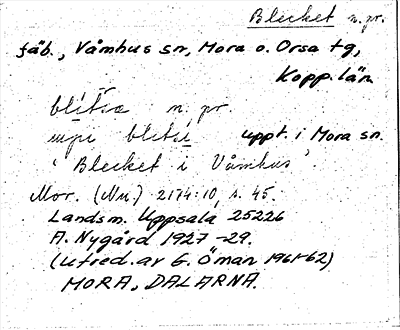 Blecket n. pr.
fäb., Våmhus sn, Mora o. Orsa tg,
Kopp. län
n. pr.
uppt. i Mora sn.
'Blecket i Våmhus'.
Mor. (Nu.) 2174:10, s. 45.
Landsm. Uppsala 25226
A. Nygård 1927-29.
(Utred. av G. Öman 1961-62)
MORA, DALARNA.